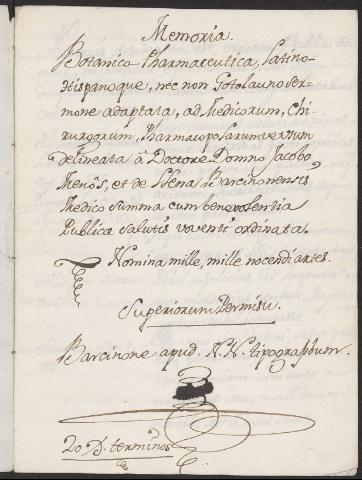 Memoria.
Botanico Pharmaceutica, Latino-
Hispanoque, nec non Gotolauno Ser-
mone adaptata, ad Medicorum, Chi
rurgorum, Pharmacopolarum versum
delineata à Doctore Domno Jacobo
Menòs, et de Llena Barcinonensis
Medico summa cum benevolentia
Publicæ salutis voventi ordinata.
Nomina mille, mille nocendi artes.
Superiorum Permisu.
Barcinone apud. N. N. tipographum.
20 terminos